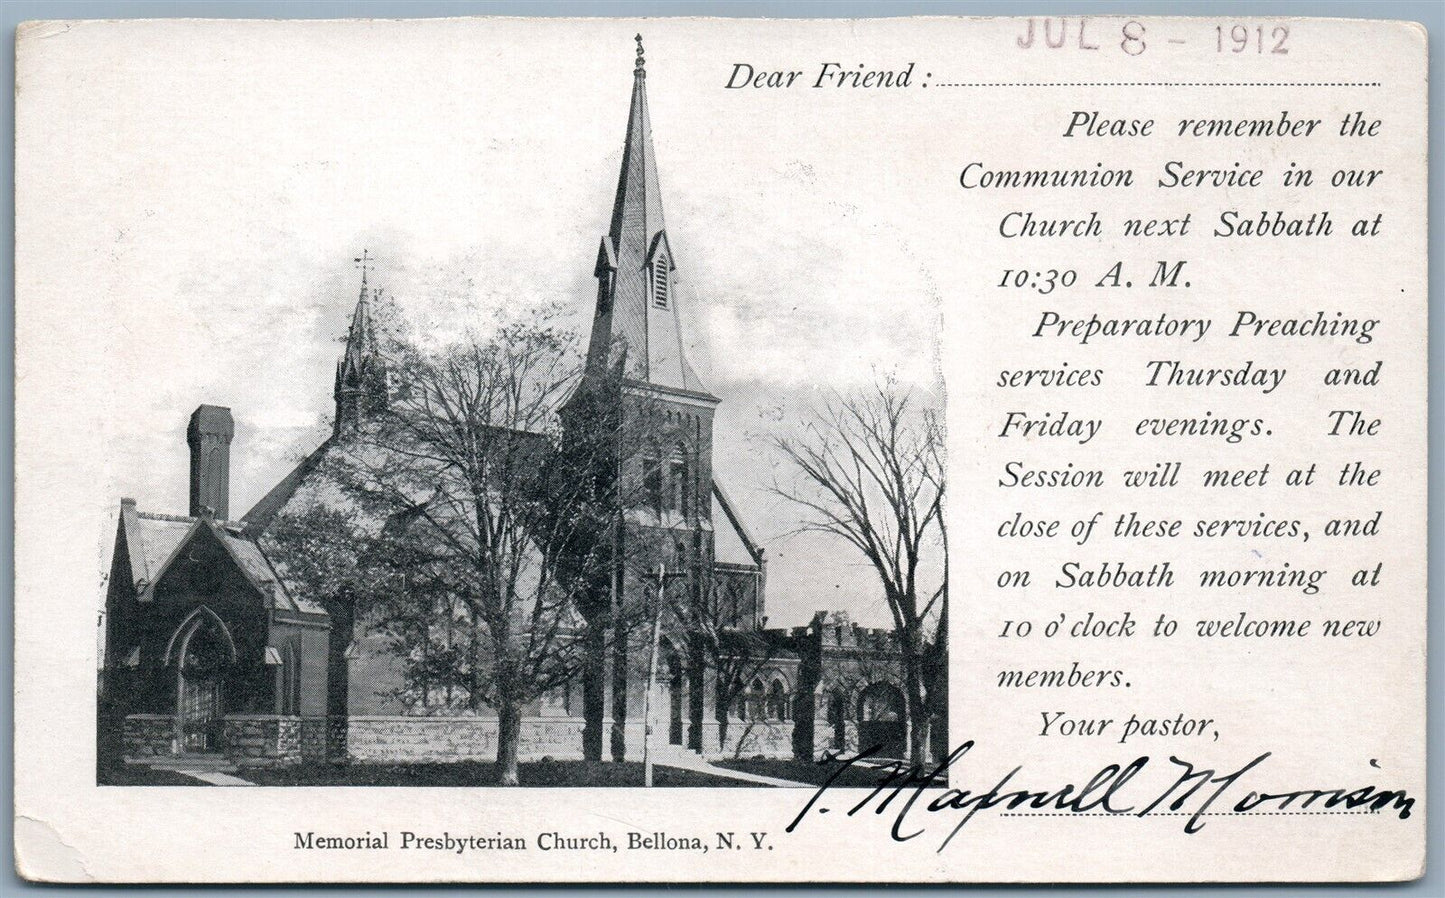 JUL 8 - 1912
Dear Friend :
Please remember the
Communion Service in our
Church next Sabbath at
10:30 A. M.
Preparatory Preaching
services Thursday and
Friday evenings. The
Session will meet at the
close of these services, and
on Sabbath morning at
10 o'clock to welcome new
members.
Your pastor,
T. Maxwell Morrison
Memorial Presbyterian Church, Bellona, N. Y.